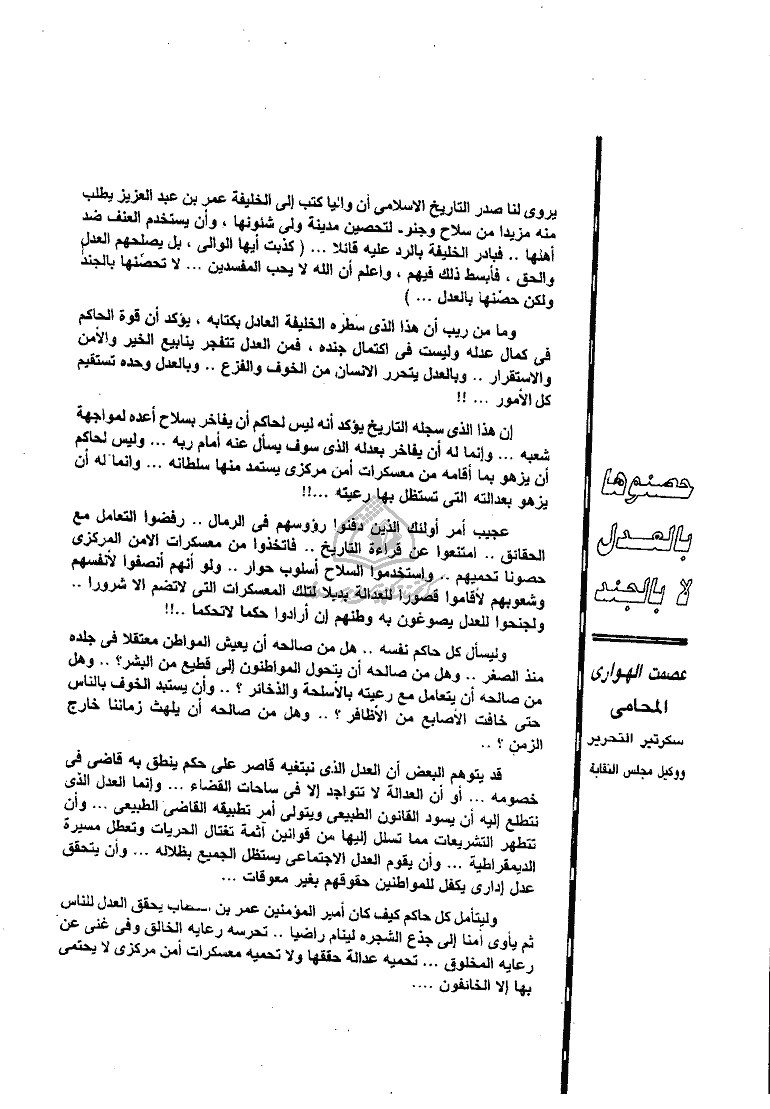 حصنوها
بالعدل
لا بالجند
عصمت الهوارى
المحامى
سكرتير التحرير
ووكيل مجلس النقابة
يروى لنا صدر التاريخ الاسلامى أن واليا كتب إلى الخليفة عمر بن عبد العزيز يطلب
منه مزيدا من سلاح وجنو لتحصين مدينة ولى شئونها ، وأن يستخدم العنف ضد
أهلها .. فبادر الخليفة بالرد عليه قائلا ... ( كذبت أيها الوالى ، بل يصلحهم العدل
والحق ، فأبسط ذلك فيهم ، واعلم أن الله لا يحب المفسدين ... لا تحصّنها بالجند
ولكن حصّنها بالعدل ... )
وما من ريب أن هذا الذى سطره الخليفة العادل بكتابه ، يؤكد أن قوة الحاكم
فى كمال عدله وليست فى اكتمال جنده ، فمن العدل تتفجر ينابيع الخير والأمن
والاستقرار .. وبالعدل يتحرر الانسان من الخوف والفزع .. وبالعدل وحده تستقيم
كل الأمور ... !!
إن هذا الذى سجله التاريخ يؤكد أنه ليس لحاكم أن يفاخر بسلاح أعده لمواجهة
شعبه ... وإنما له أن يفاخر بعدله الذى سوف يسأل عنه أمام ربه ... وليس لحاكم
أن يزهو بما أقامه من معسكرات أمن مركزى يستمد منها سلطانه ... وانما له أن
يزهو بعدالته التى تستظل بها رعيته ...!!
عجيب أمر أولئك الذين دفنوا رؤوسهم فى الرمال .. رفضوا التعامل مع
الحقائق .. امتنعوا عن قراءة التاريخ .. فاتخذوا من معسكرات الامن المركزى
حصونا تحميهم .. واستخدموا السلاح أسلوب حوار .. ولو أنهم أنصفوا لأنفسهم
وشعوبهم لأقاموا قصورا للعدالة بديلا لتلك المعسكرات التى لاتضم الا شرورا ..
ولجنحوا للعدل يصوغون به وطنهم إن أرادوا حكما لاتحكما ..!!
وليسأل كل حاكم نفسه .. هل من صالحه أن يعيش المواطن معتقلا فى جلده
منذ الصغر .. وهل من صالحه أن يتحول المواطنون إلى قطيع من البشر؟ .. وهل
من صالحه أن يتعامل مع رعيته بالأسلحة والذخائر ؟ .. وأن يستبد الخوف بالناس
حتى خافت الأصابع من الأظافر ؟ .. وهل من صالحه أن يلهث زماننا خارج
الزمن ؟ ..
قد يتوهم البعض أن العدل الذى نبتغيه قاصر على حكم ينطق به قاضى فى
خصومه ... أو أن العدالة لا تتواجد إلا فى ساحات القضاء ... وإنما العدل الذى
نتطلع إليه أن يسود القانون الطبيعى ويتولى أمر تطبيقه القاضى الطبيعى ... وأن
تتطهر التشريعات مما تسلل إليها من قوانين آثمة تغتال الحريات وتعطل مسيرة
الديمقراطية ... وأن يقوم العدل الاجتماعى يستظل الجميع بظلاله ... وأن يتحقق
عدل إدارى يكفل للمواطنين حقوقهم بغير معوقات ...
وليتأمل كل حاكم كيف كان أمير المؤمنين عمر بن يحقق العدل للناس
ثم يأوى آمنا إلى جذع الشجره لينام راضيا .. تحرسه رعايه الخالق وفى غنى عن
رعايه المخلوق ... تحميه عدالة حققها ولا تحميه معسكرات أمن مركزى لا يحتمى
بها إلا الخائفون ....